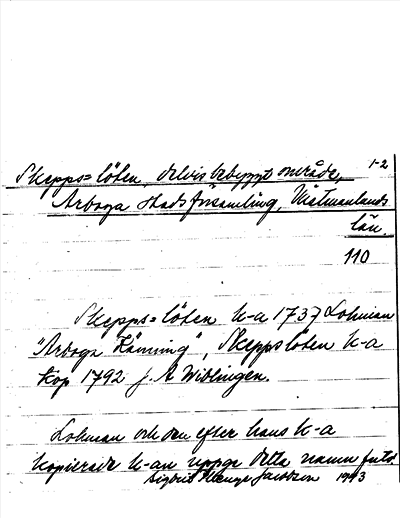 1-2
Skepps=löten, delvis bebyggt område,
Arboga stadsförsamling, Västmanlands
län.
110
Skepps=löten k-a 1737 Lohman
"Arboga Känning", Skeppslöten k-a
kop 1792 J. A Wiblingen.
Lohman och den efter hans k-a
kopierade k-an uppge detta namn
Sigbrit Jacobson 1943